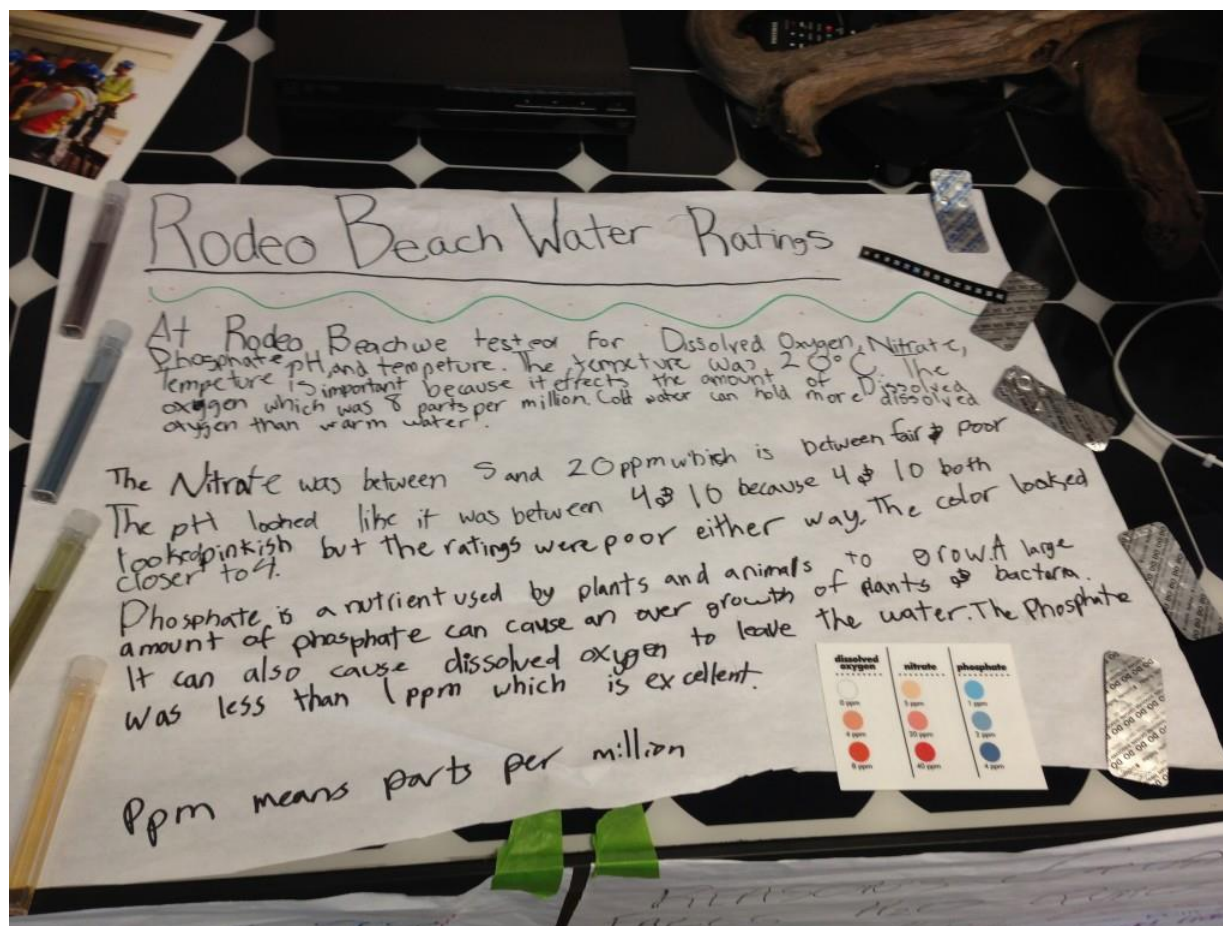 Rodeo Beach Water Ratings
At Rodeo Beach we tested for Dissolved Oxygen, Nitrate,
Phosphate, pH, and tempeture. The tempeture was 20°C. The
tempeture is important because it effects the amount of Dissolved
oxygen which was 8 parts per million. Cold water can hold more dissolved
oxygen than warm water.
The Nitrate was between 5 and 20 ppm which is between fair & poor
The pH looked like it was between 4 & 10 because 4 & 10 both
looked pinkish but the ratings were poor either way. The color looked
closer to 4.
Phosphate is a nutrient used by plants and animals to grow. A large
amount of phosphate can cause an over growth of plants & bacteria.
It can also cause dissolved oxygen to leave the water. The Phosphate
was less than 1 ppm which is excellent.
Ppm means parts per million
dissolved oxygen nitrate phosphate
0 ppm 5 ppm 1 ppm
4 ppm 20 ppm 2 ppm
8 ppm 40 ppm 4 ppm